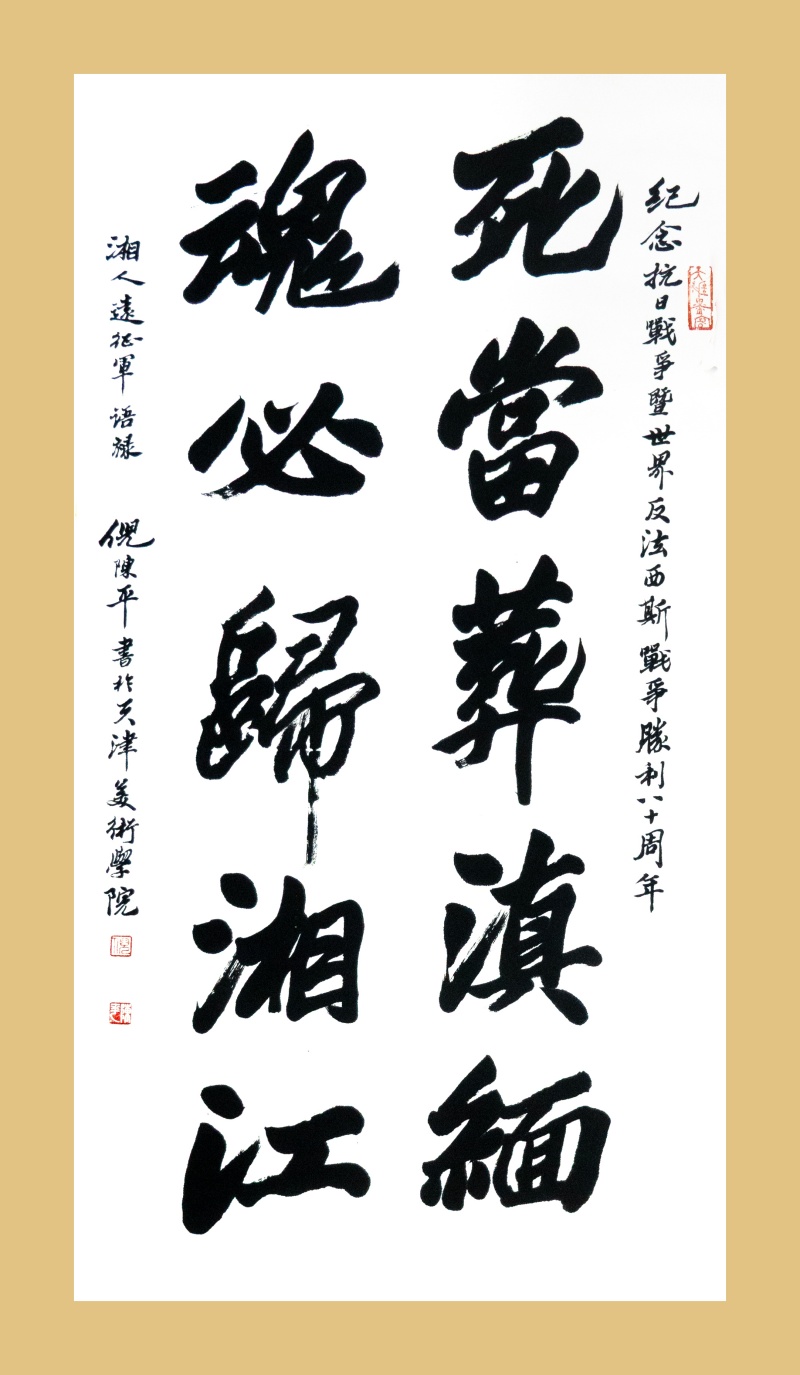 纪念抗日戰爭暨世界反法西斯戰爭勝利八十周年
死當葬滇緬
魂必歸湘江
湘人遠征軍语录
倪陳平書於天津美術學院